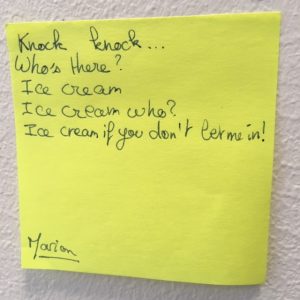 Knock knock...
Who's there?
Ice cream
Ice cream who?
Ice cream if you don't let me in!
Marion